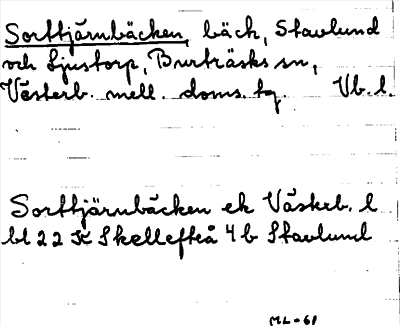 Sorttjärnbäcken, bäck, Stavlund
och Ljustorp, Burträsks sn,
Västerb. mell. doms. tg. Vb. l.
Sorttjärnbäcken ek Västerb. l
bl 22 K Skellefteå 4b Stavlund
ML-61